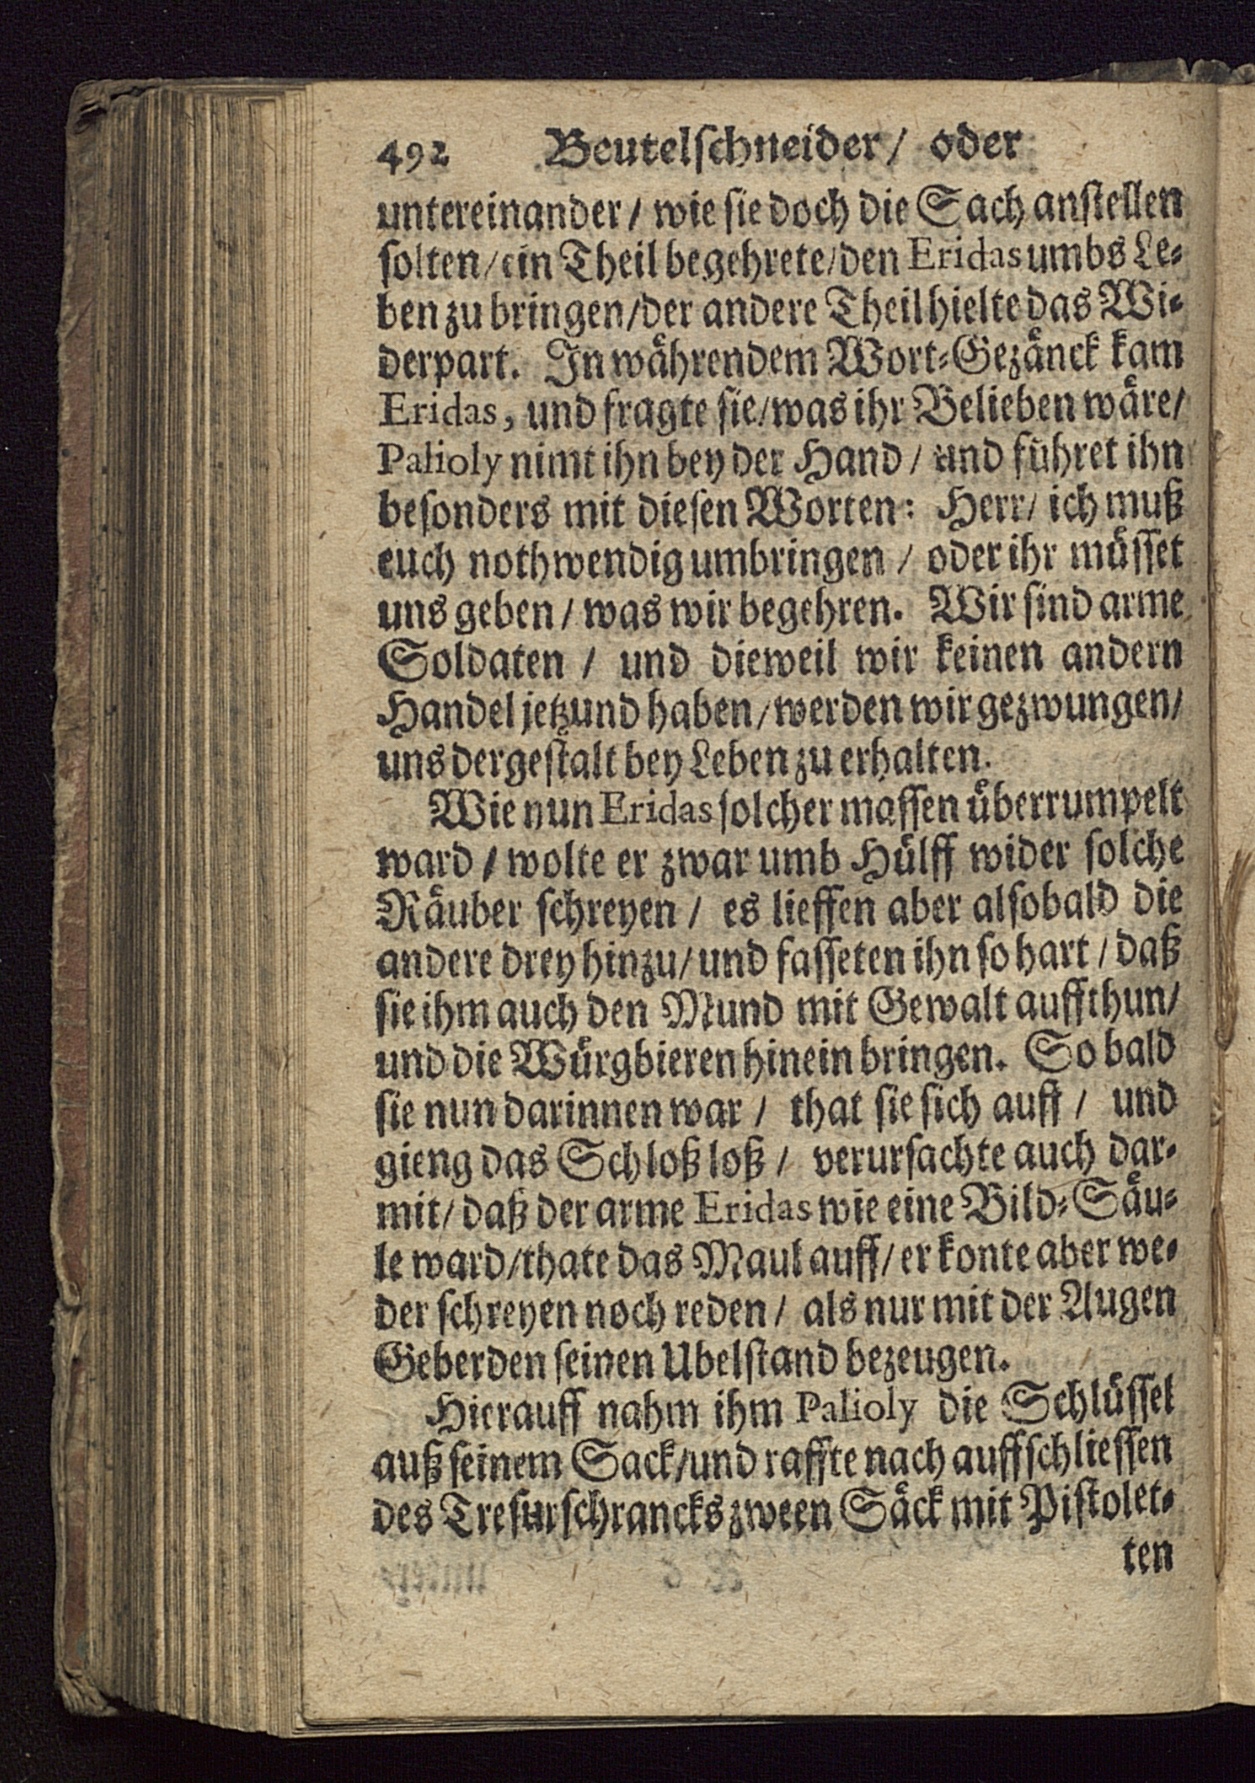 492 Beutelschneider/ oder
untereinander/ wie sie doch die Sach anstellen
solten/ ein Theil begehrete/ den Eridas umbs Le-
ben zu bringen/ der andere Theil hielte das Wi-
derpart. In währendem Wort-Gezänck kam
Eridas, und fragte sie/ was ihr Belieben wäre/
Palioly nimt ihn bey der Hand/ und führet ihn
besonders mit diesen Worten: Herr/ ich muß
euch nothwendig umbringen/ oder ihr müsset
uns geben/ was wir begehren. Wir sind arme
Soldaten/ und dieweil wir keinen andern
Handel jetzund haben/ werden wir gezwungen/
uns dergestalt bey Leben zu erhalten.
Wie nun Eridas solcher massen überrumpelt
ward/ wolte er zwar umb Hülff wider solche
Räuber schreyen/ es lieffen aber alsobald die
andere drey hinzu/ und fasseten ihn so hart/ daß
sie ihm auch den Mund mit Gewalt auffthun/
und die Würgbieren hinein bringen. So bald
sie nun darinnen war/ that sie sich auff/ und
gieng das Schloß loß/ verursachte auch dar-
mit/ daß der arme Eridas wie eine Bild-Säu-
le ward/ thate das Maul auff/ er konte aber we-
der schreyen noch reden/ als nur mit der Augen
Geberden seinen Ubelstand bezeugen.
Hierauff nahm ihm Palioly die Schlüssel
auß seinem Sack/ und raffte nach auffschliessen
des Tresurschrancks zween Säck mit Pistolet-
ten